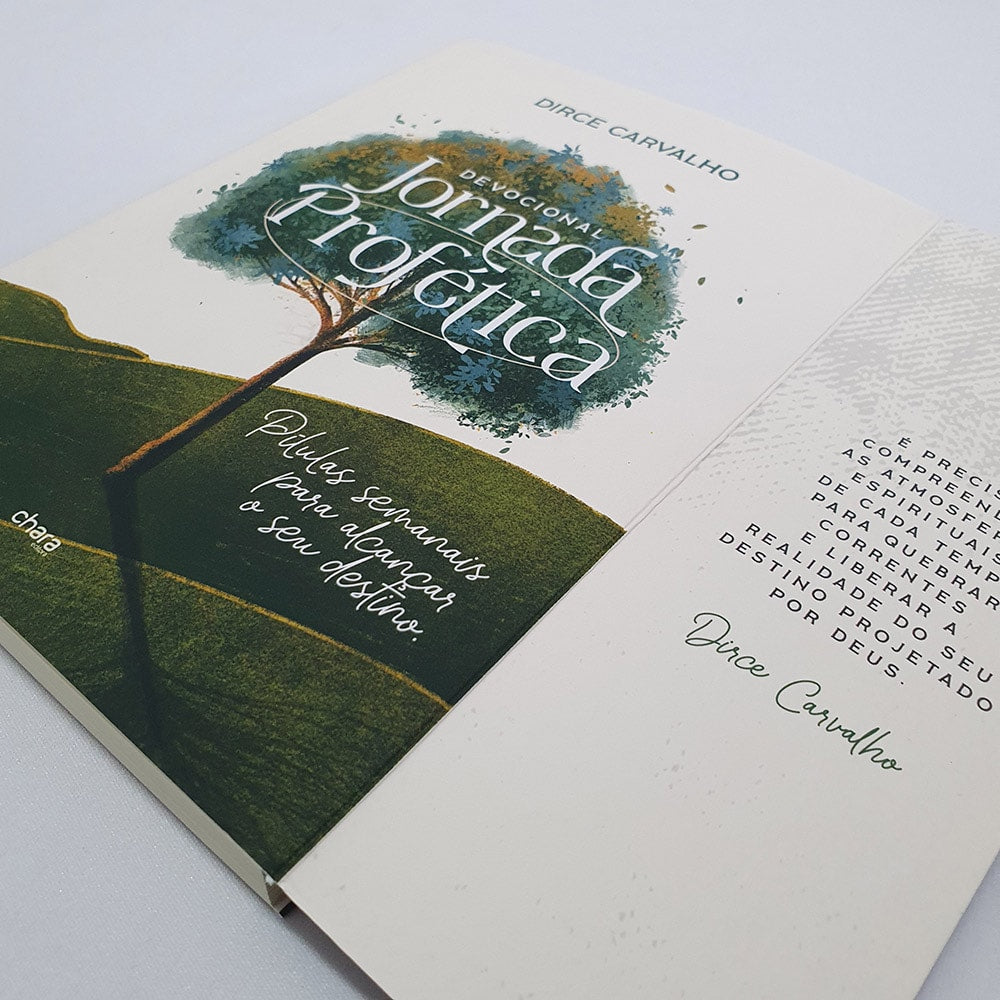 DIRCE CARVALHO
DEVOCIONAL
Jornada
Profética
Pílulas semanais
para alcançar
o seu destino.
chara
É
COMPREENDER
AS
ESPIRITUAIS
DE CADA TEMPO
PARA QUEBRAR
CORRENTES
E LIBERAR A
REALIDADE DO SEU
DESTINO PROJETADO
POR DEUS.
Dirce Carvalho